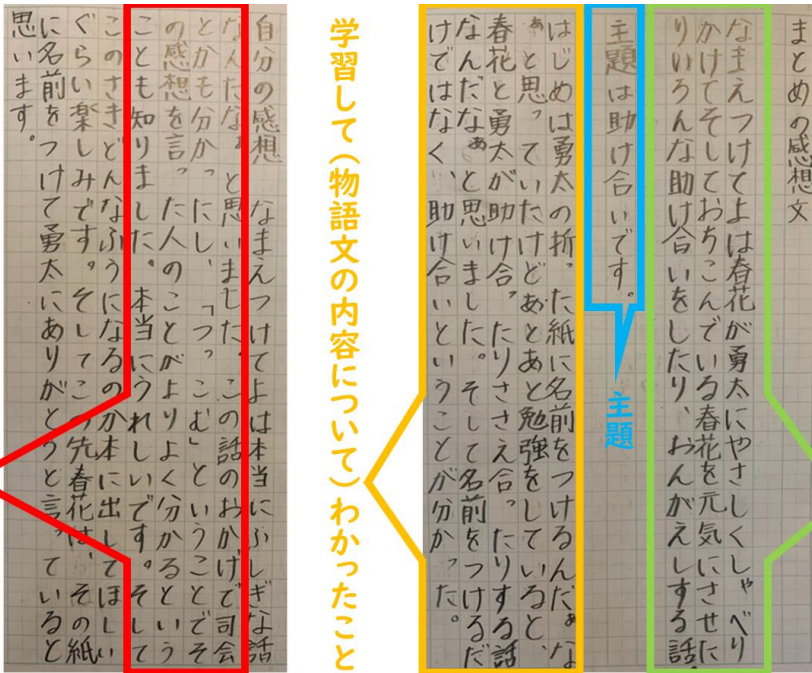 まとめの感想文
なまえつけてよは春花が勇太にやさしくしゃべり
かけてそしておちこんでいる春花を元気にさせた
りいろんな助け合いをしたり、おんがえしする話。
主題は助け合いです。
主題
はじめは勇太の折った紙に名前をつけるんだぁな
ぁと思っていたけどあとあと勉強をしていると、
春花と勇太が助け合ったりささえ合ったりする話
なんだなぁと思いました。そして名前をつけるだ
けではなく、助け合いということが分かった。
学習して(物語文の内容について)わかったこと
自分の感想 なまえつけてよは本当にふしぎな話
なんだなぁと思いました。この話のおかげで司会
とかも分かったにし、「つっこむ」ということでそ
の感想を言った人のことがよりよく分かるという
ことも知りました。本当にうれしいです。そして
このさきどんなふうになるのか本に出してほしい
ぐらい楽しみです。そしてこの先春花は、その紙
に名前をつけて勇太にありがとうと言っていると
思います。